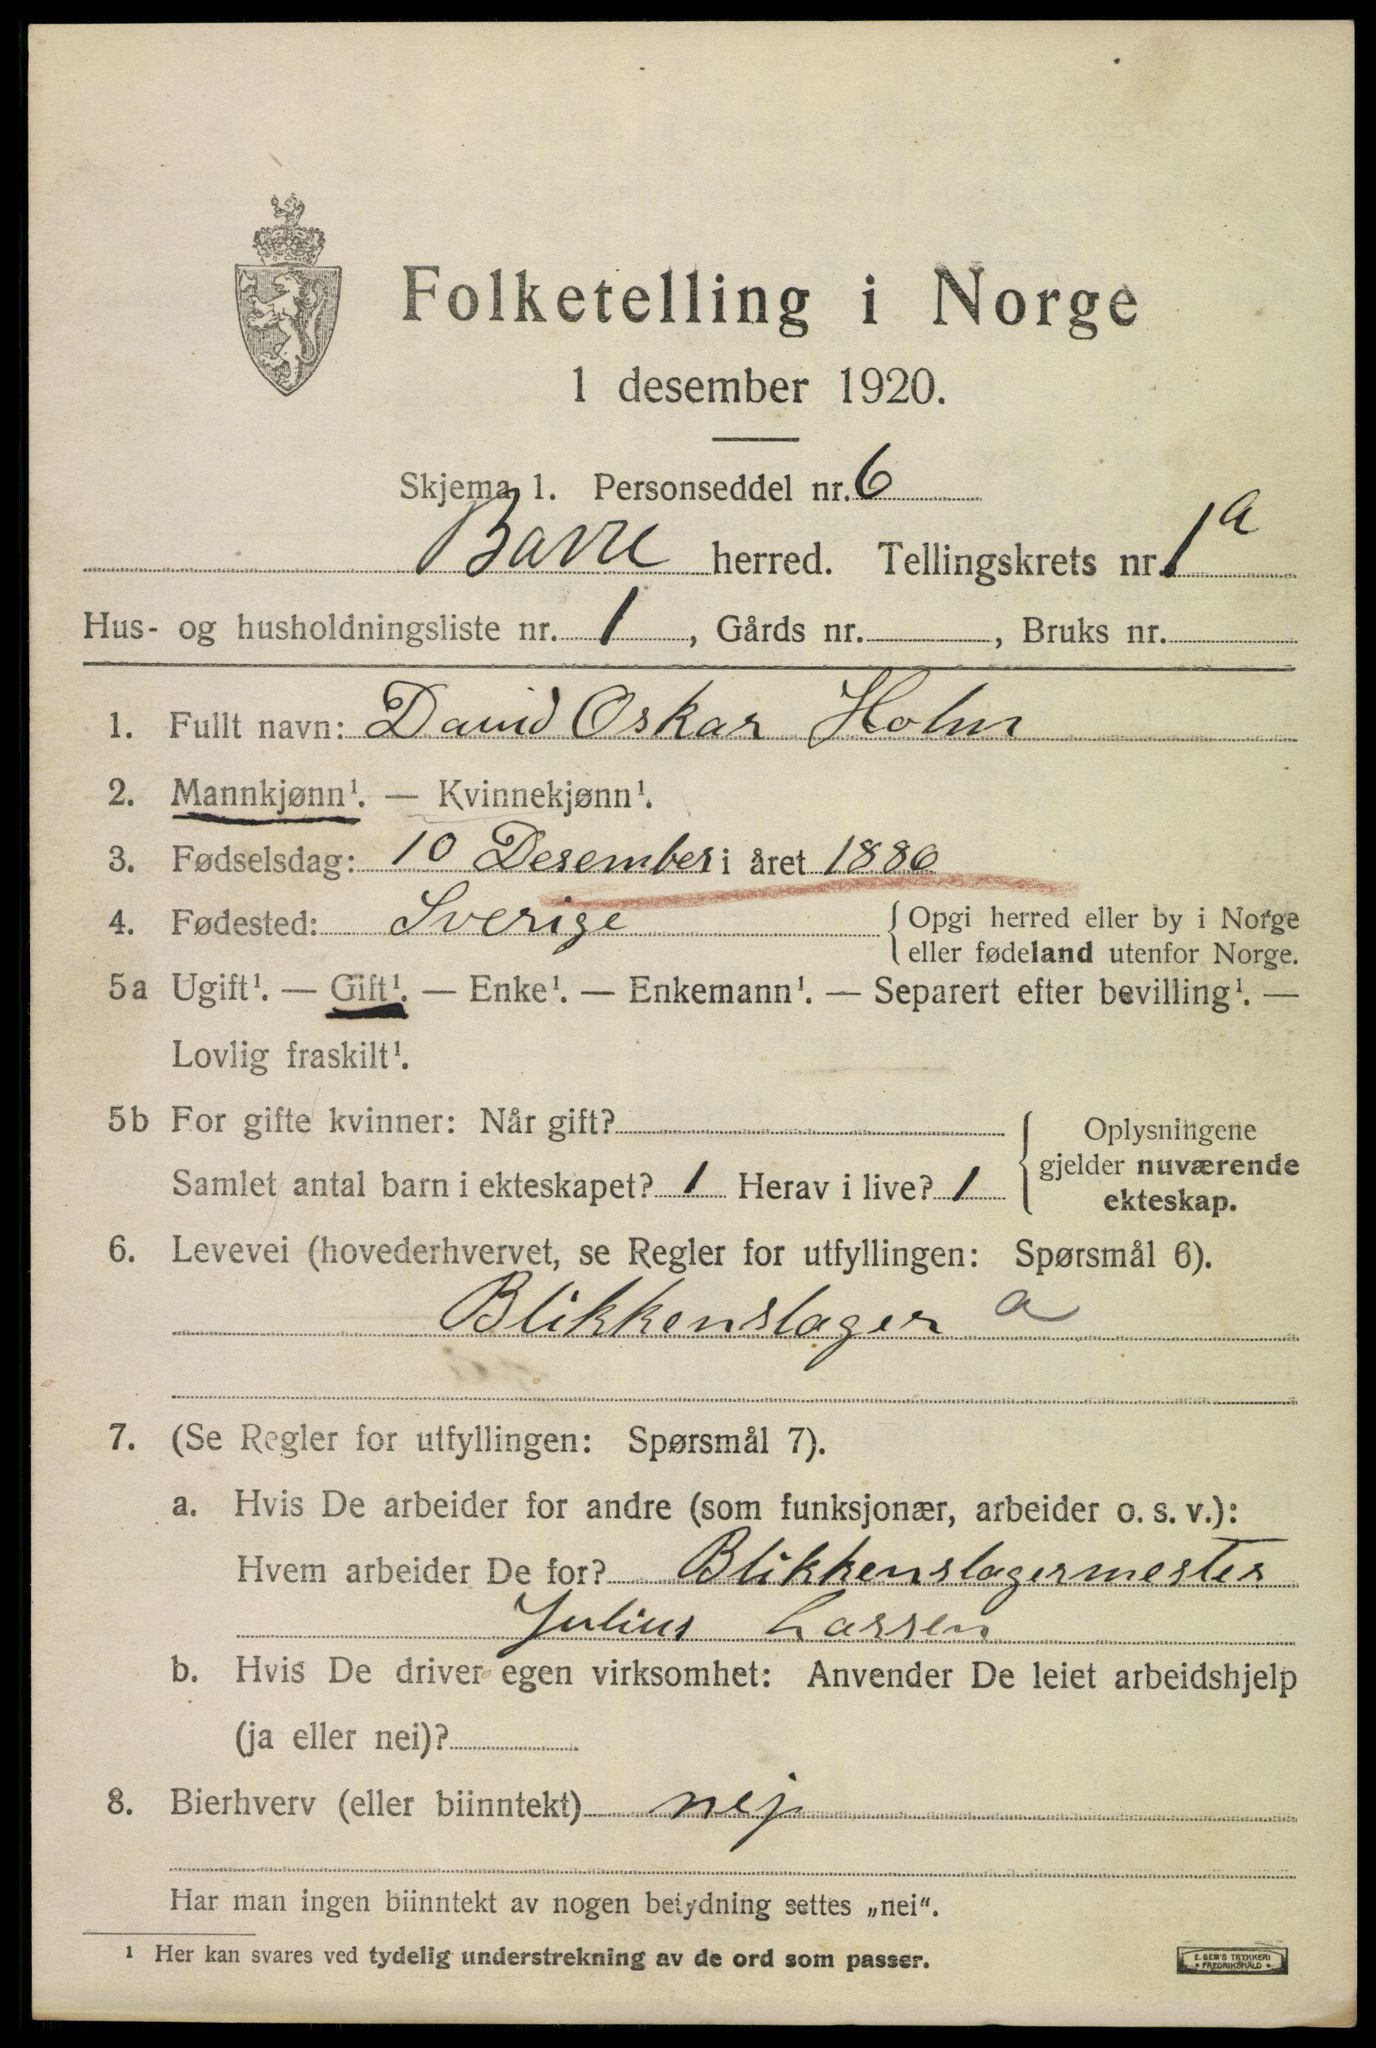 Folketelling i Norge
1 desember 1920.
Skjema 1. Personseddel nr. 6
Barre herred. Tellingskrets nr. 1a
Hus- og husholdningsliste nr. 1, Gårds nr. , Bruks nr.
1. Fullt navn: David Oskar Holm
2. Mannkjønn¹. — Kvinnekjønn¹.
3. Fødselsdag: 10 Desember i året 1886
4. Fødested: Sverige { Opgi herred eller by i Norge
eller fødeland utenfor Norge.
5a Ugift¹. — Gift¹. — Enke¹. — Enkemann¹. — Separert efter bevilling¹. —
Lovlig fraskilt¹.
5b For gifte kvinner: Når gift?
Samlet antal barn i ekteskapet? 1 Herav i live? 1
Oplysningene
gjelder nuværende
ekteskap.
6. Levevei (hovederhvervet, se Regler for utfyllingen: Spørsmål 6).
Blikkenslager a
7. (Se Regler for utfyllingen: Spørsmål 7).
a. Hvis De arbeider for andre (som funksjonær, arbeider o. s. v.):
Hvem arbeider De for? Blikkenslagermester
Julius Larsen
b. Hvis De driver egen virksomhet: Anvender De leiet arbeidshjelp
(ja eller nei)?
8. Bierhverv (eller biinntekt) nej
Har man ingen biinntekt av nogen betydning settes „nei".
¹ Her kan svares ved tydelig understrekning av de ord som passer.
E. SEM'S TRYKKERI
FREDRIKSHALD